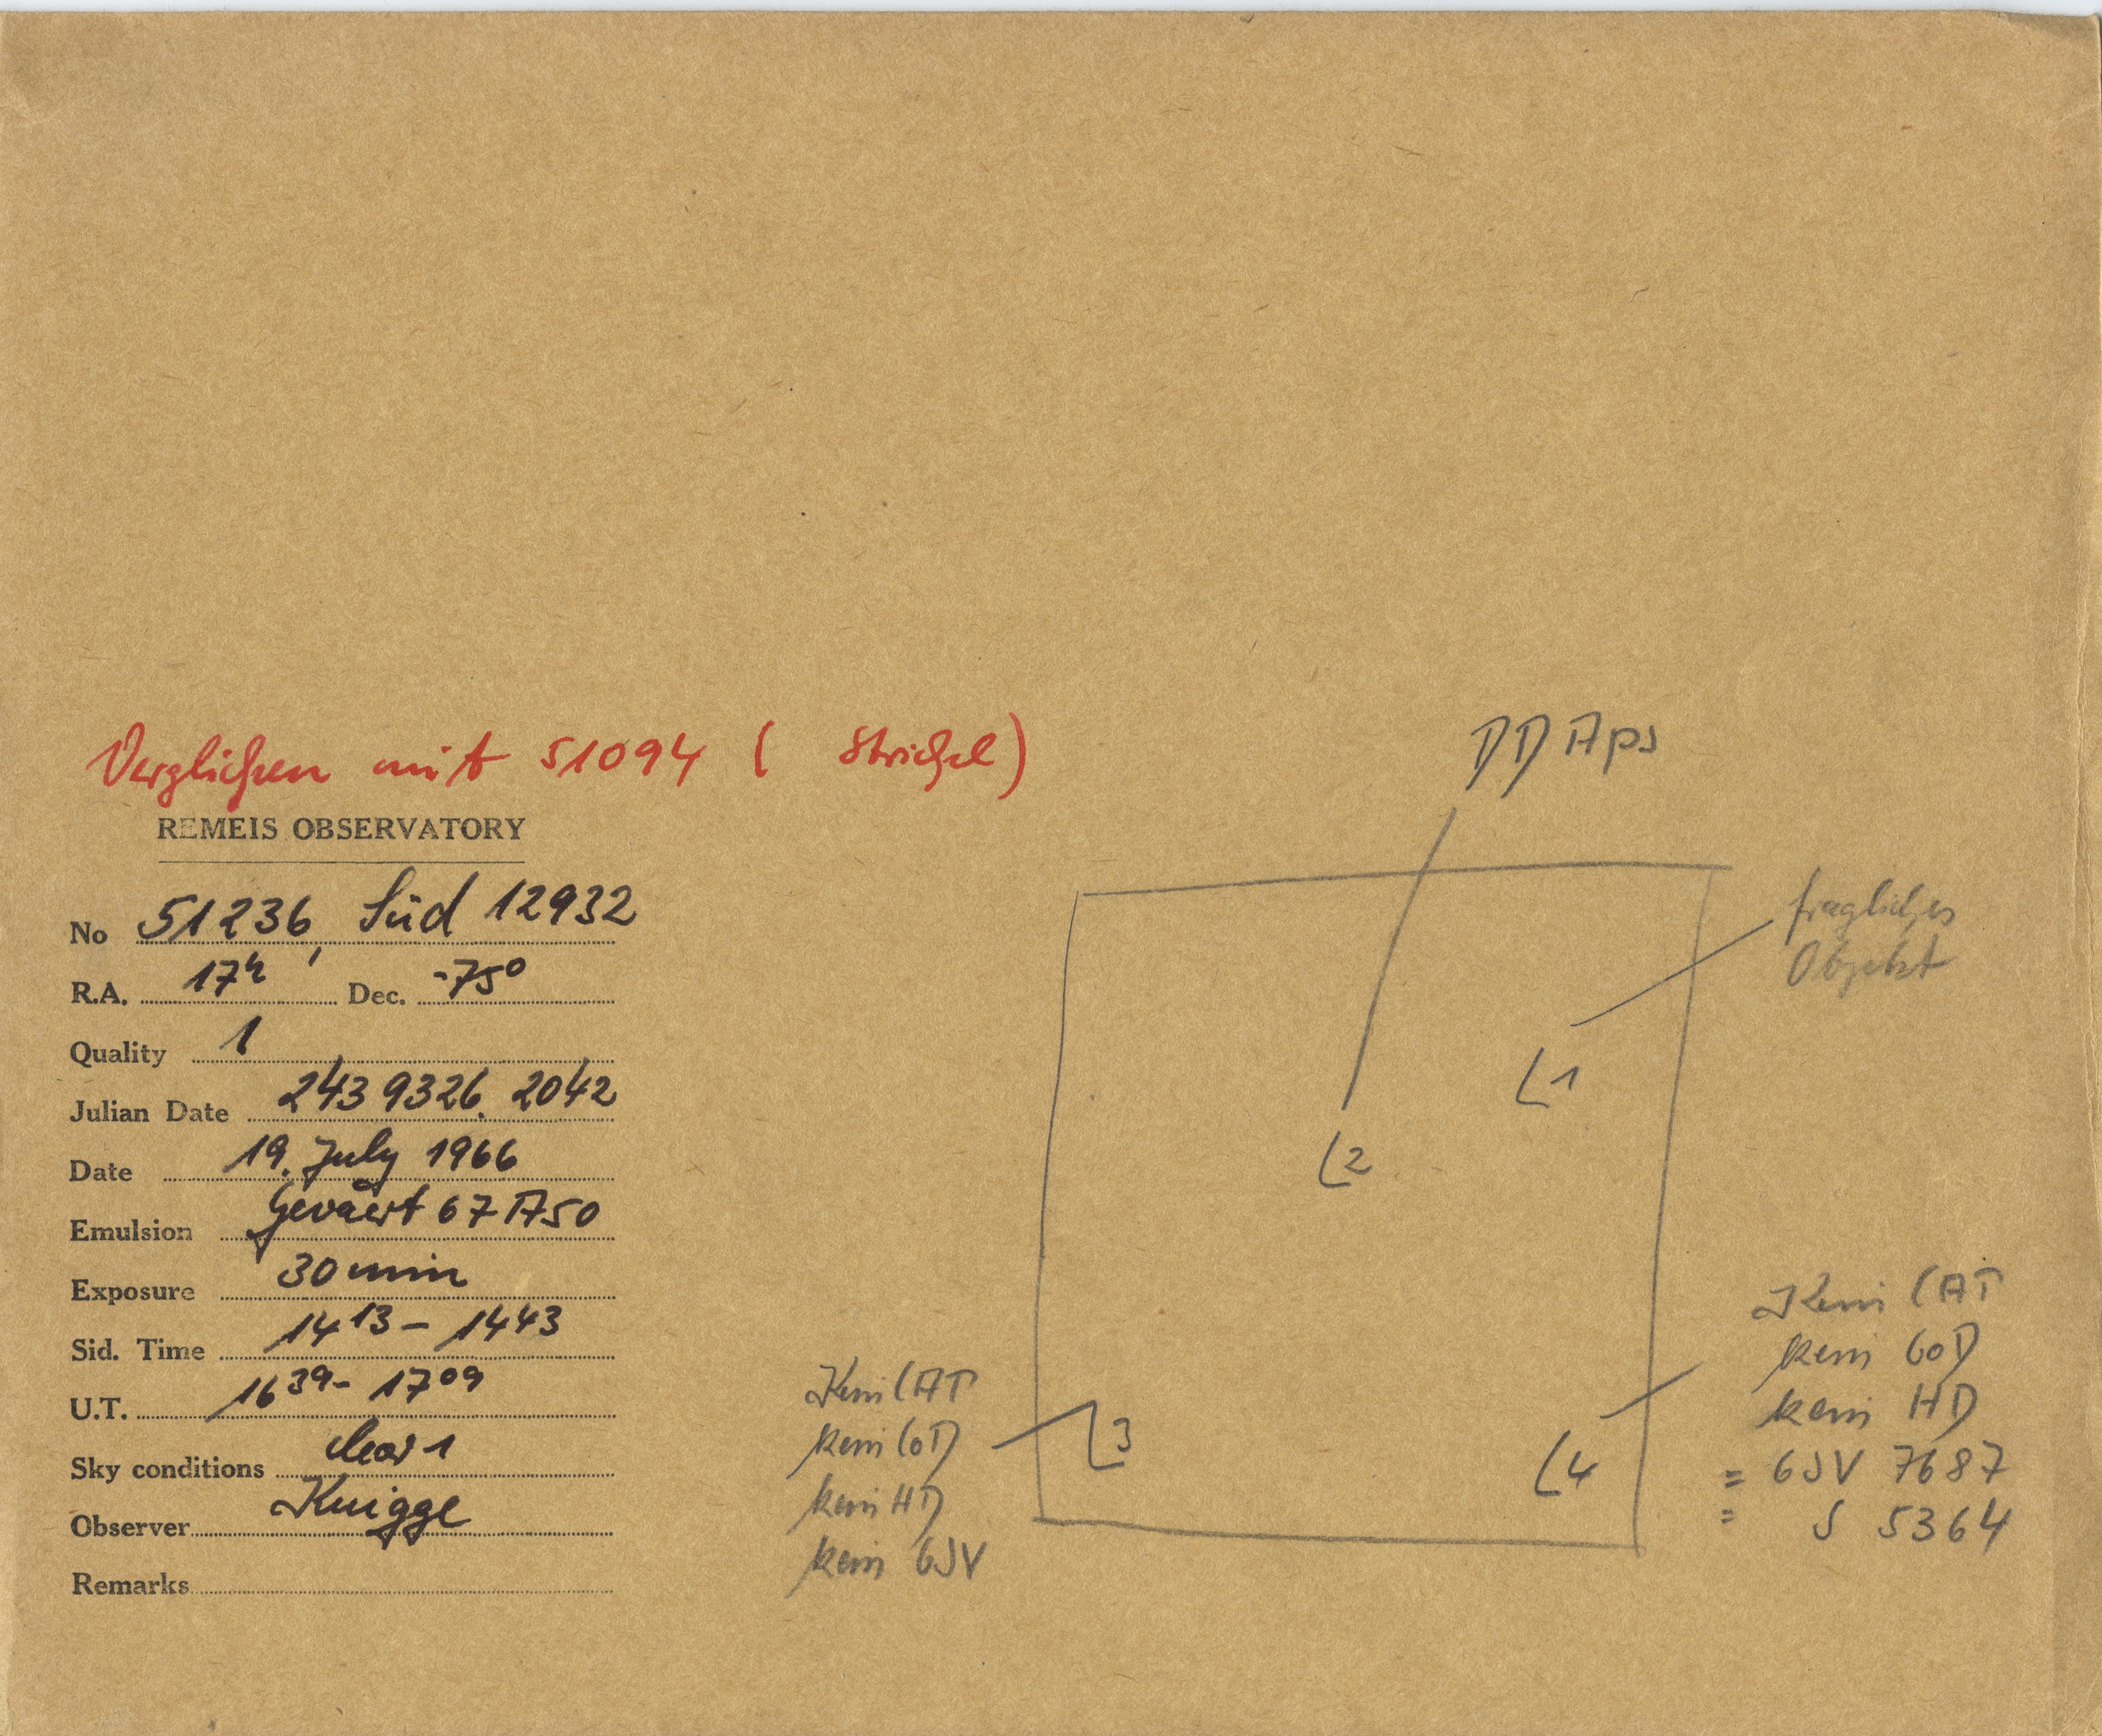 Verglichen mit 51094 ( Strichel)
REMEIS OBSERVATORY
No 51236, Süd 12932
R.A. 17h Dec. -75°
Quality 1
Julian Date 243 9326. 2042
Date 19. July 1966
Emulsion Gevaert 67 A50
Exposure 30 min
Sid. Time 14 13 - 14 43
U.T. 16 39 - 17 09
Sky conditions clear 1
Observer Knigge
Remarks
DD Aps
fragliches
Objekt
1
2
3
4
Kein CAT
kein CoD
kein HD
kein GSV
Kein CAT
kein CoD
kein HD
= GSV 7687
= S 5364